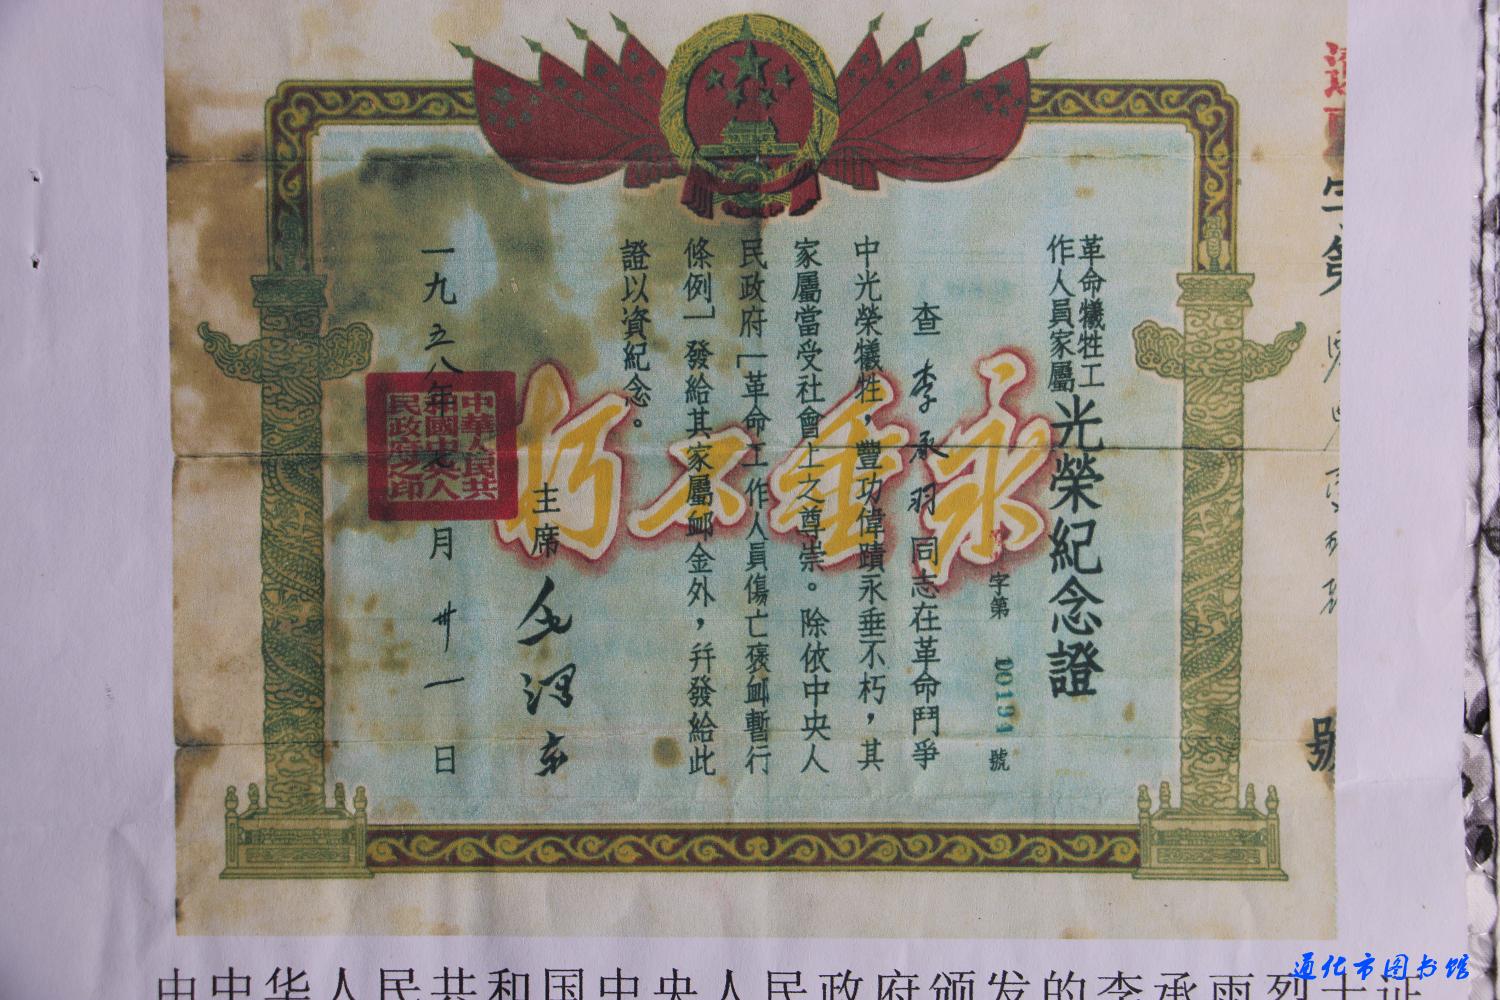 革命犧牲工
作人員家屬
光榮紀念證
字第 00191 號
查 李承羽 同志在革命鬥爭
中光榮犧牲，豐功偉蹟永垂不朽，其
家屬當受社會上之尊崇。除依中央人
民政府「革命工作人員傷亡褒卹暫行
條例」發給其家屬卹金外，并發給此
證以資紀念。
主席 毛澤東
一九五八年七月卅一日
永垂不朽
中華人民共
和國中央人
民政府之印
字第
號
由中华人民共和国中央人民政府颁发的李承雨烈士证
通化市图书馆